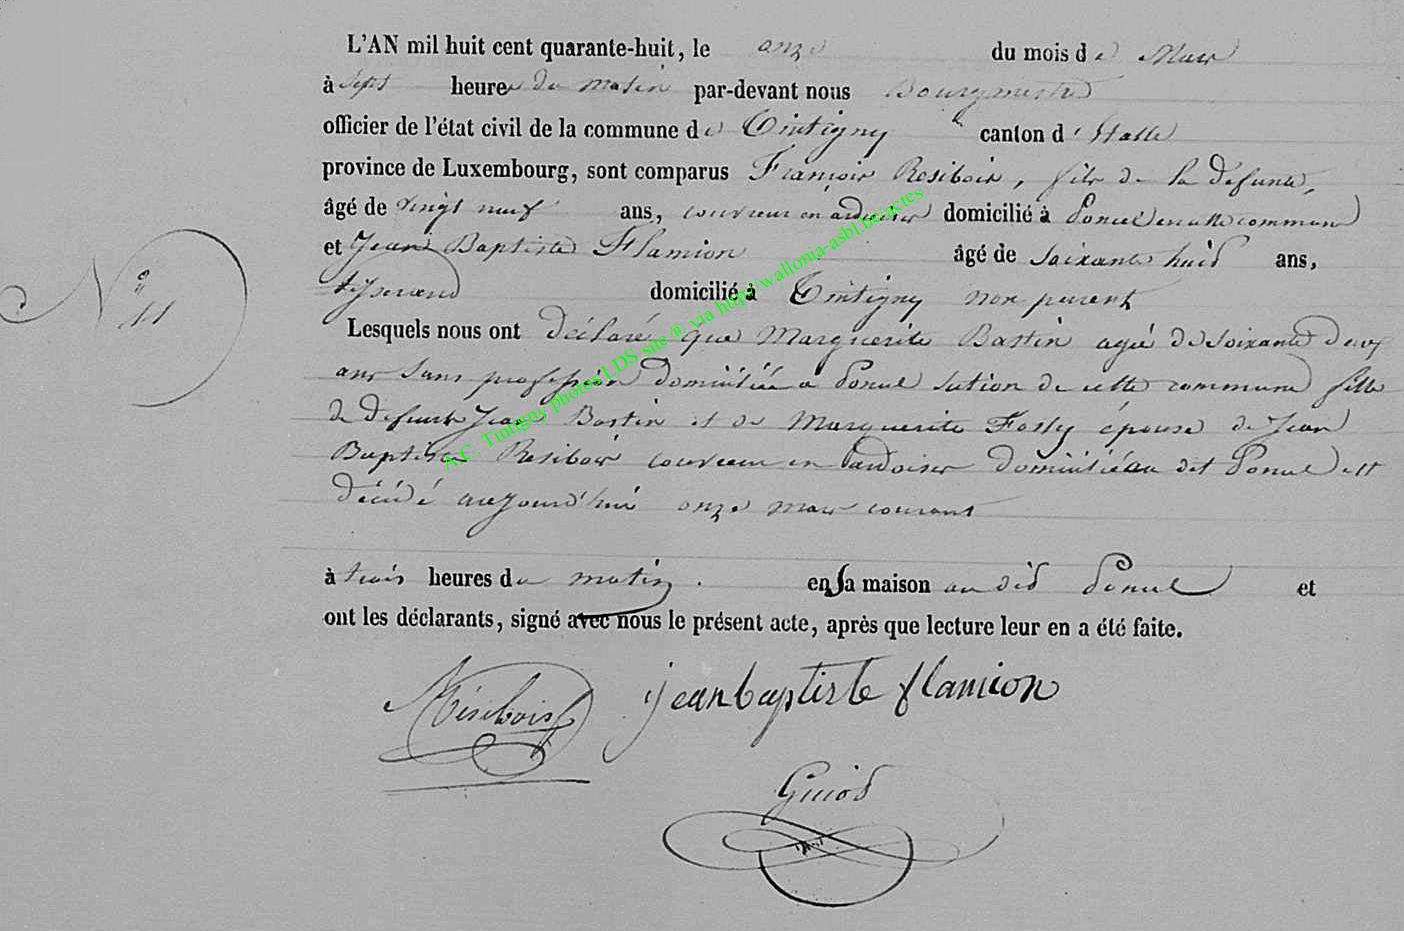 L'AN mil huit cent quarante-huit, le onze du mois de Mars
à sept heures du matin par-devant nous Bourgmestre
officier de l'état civil de la commune de Tintigny canton d'Etalle
province de Luxembourg, sont comparus François Resibois, fils de la defunte,
âgé de vingt neuf ans, couvreur en ardoises domicilié à Poncel en cette commune
et Jean Baptiste Flamion âgé de soixante huit ans,
N° 11
tisserand domicilié à Tintigny non parent
Lesquels nous ont déclaré que Marguerite Bastin agée de soixante deux
ans sans profession domiciliée a Poncel section de cette commune fille
de defunts Jean Bastin et de Marguerite Fossy épouse de Jean
Baptiste Resibois couvreur en ardoises domiciliée au dit Poncel est
décédé aujourd'hui onze mars courant
à trois heures du matin. en sa maison au dit Poncel et
ont les déclarants, signé avec nous le présent acte, après que lecture leur en a été faite.
Résibois jean baptiste flamion
Guiot
A.C. Tintigny photos LDS site ® via http://wallonia-asbl.be/actes